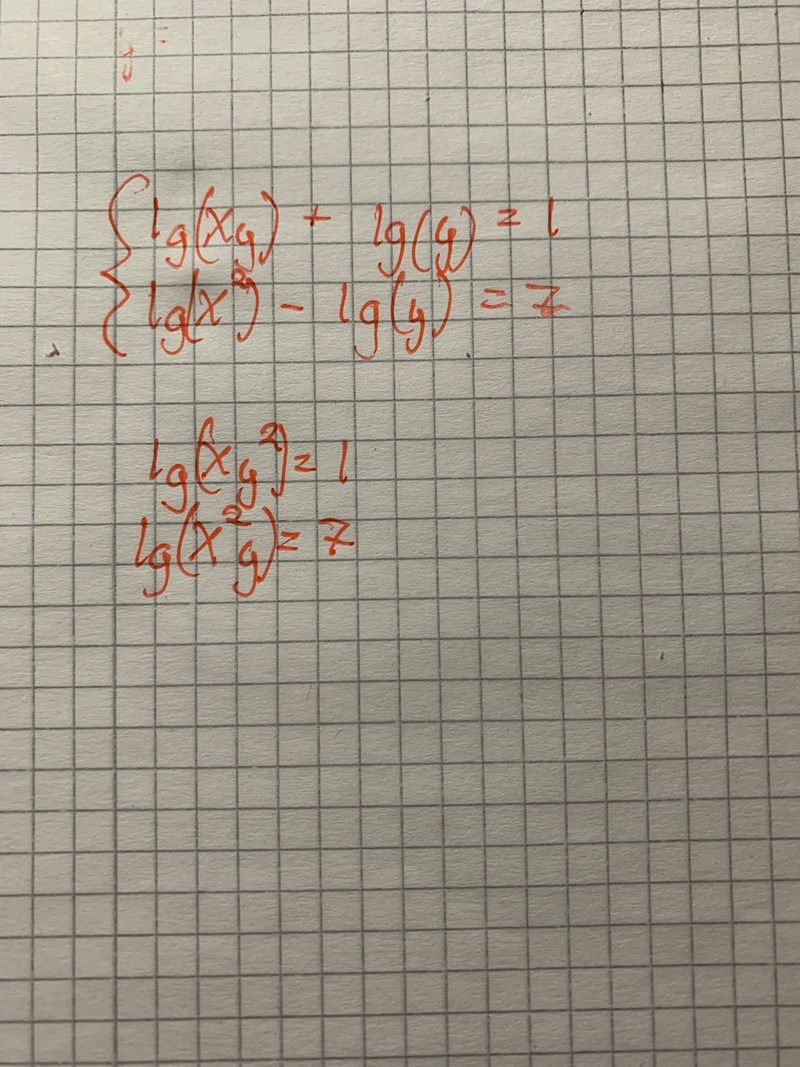 lg(xy) + lg(y) = 1
lg(x²) - lg(y) = 7
lg(xy²) = 1
lg(x²y) = 7